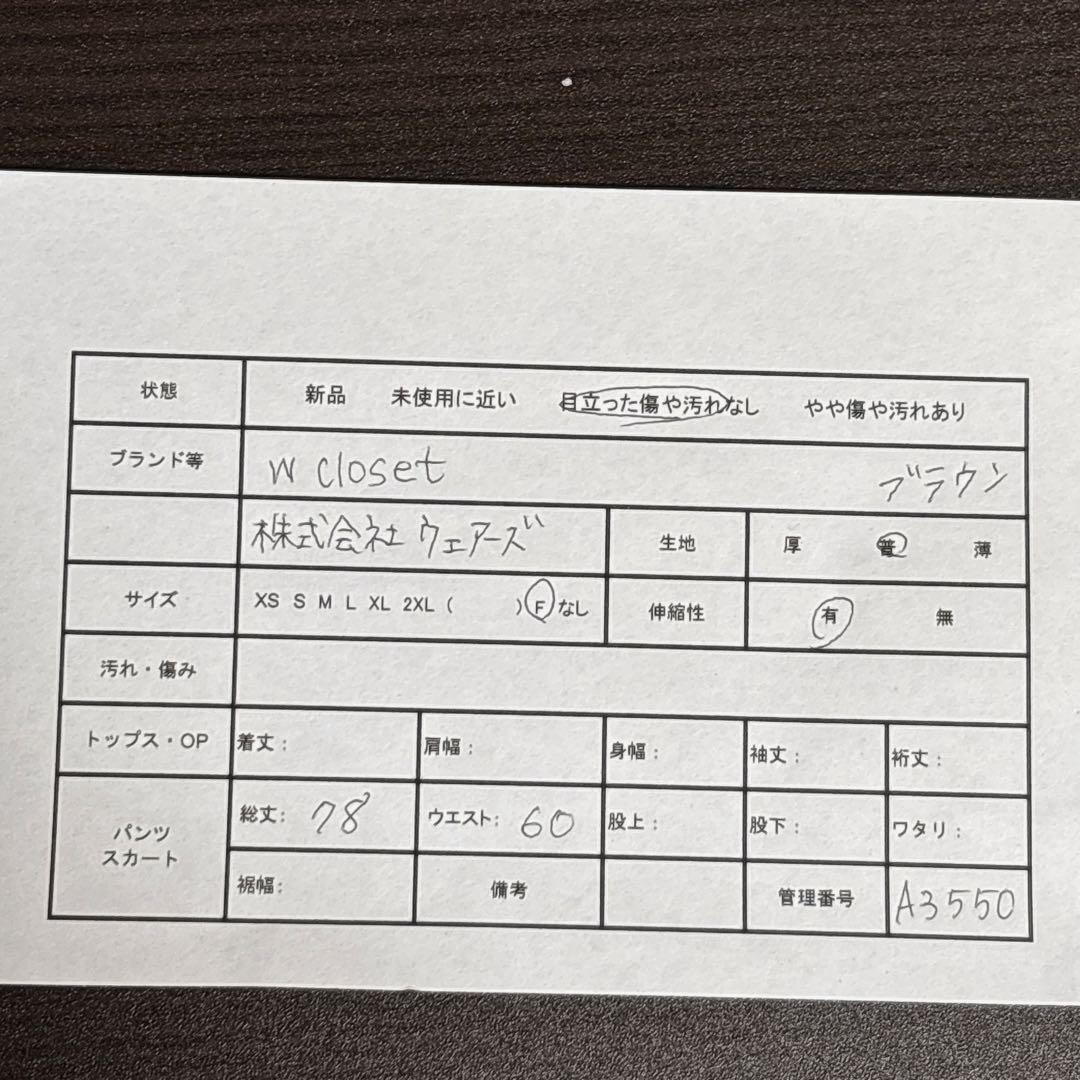 状態 新品 未使用に近い 目立った傷や汚れなし やや傷や汚れあり
ブランド等 w closet ブラウン
株式会社ウェアーズ 生地 厚 普 薄
サイズ XS S M L XL 2XL ( ) F なし 伸縮性 有 無
汚れ・傷み
トップス・OP 着丈: 肩幅: 身幅: 袖丈: 裄丈:
パンツ スカート 総丈: 78 ウエスト: 60 股上: 股下: ワタリ:
裾幅: 備考 管理番号 A3550